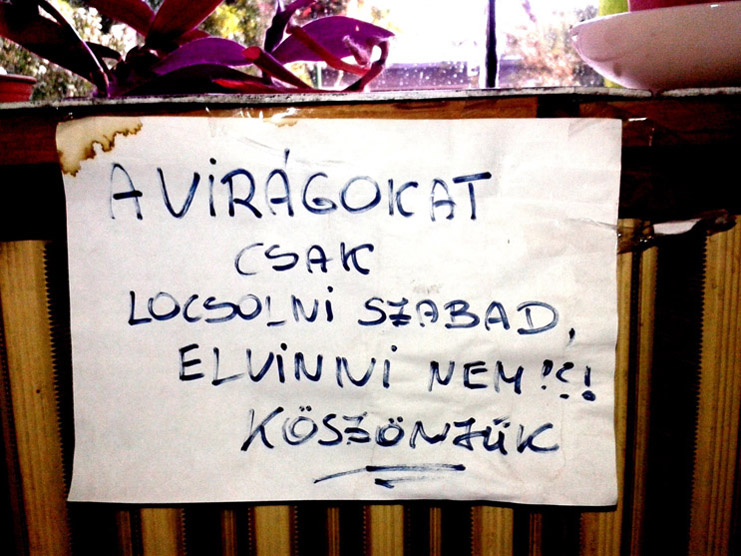 A VIRÁGOKAT
CSAK
LOCSOLNI SZABAD,
ELVINNI NEM!?!
KÖSZÖNJÜK